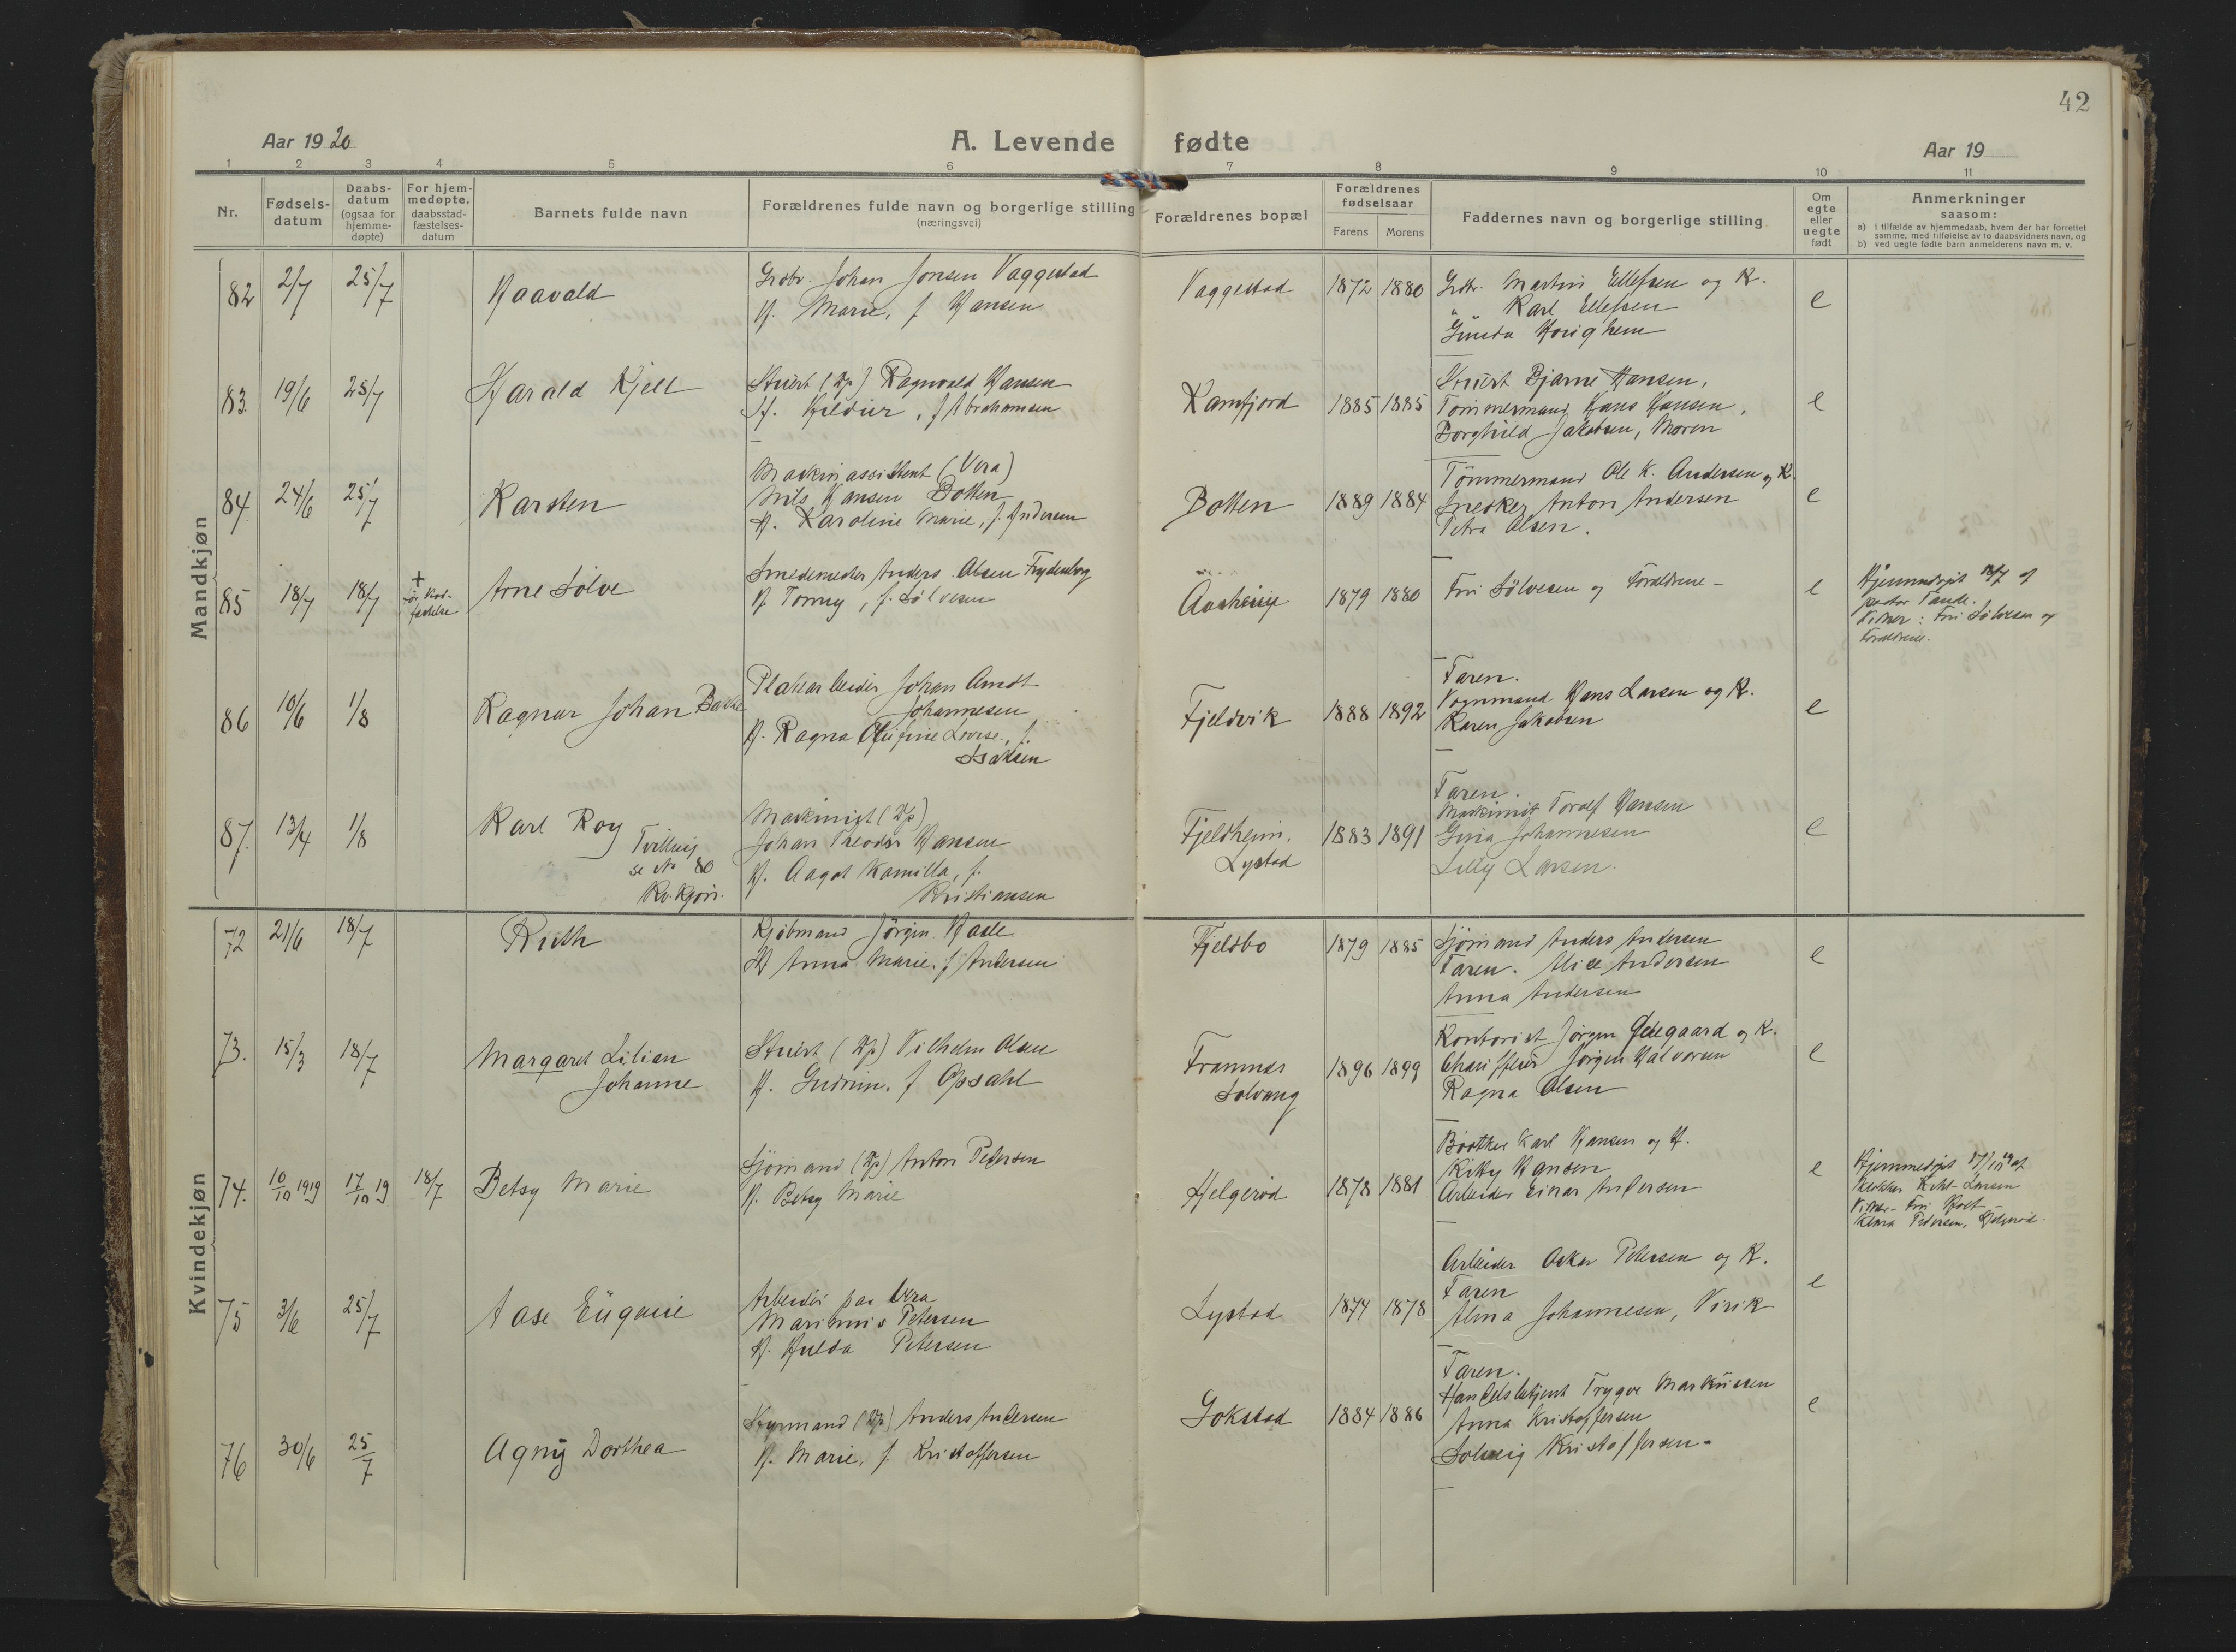 42
Aar 1920
A. Levende fødte
Aar 19
1 2 3 4 5 6 7 8 9 10 11
Nr.
Fødsels-
datum
Daabs-
datum
(ogsaa for
hjemme-
døpte)
For hjem-
medøpte,
daabsstad-
fæstelses-
datum
Barnets fulde navn
Forældrenes fulde navn og borgerlige stilling
(næringsvei)
Forældrenes bopæl
Forældrenes
fødselsaar
Farens Morens
Faddernes navn og borgerlige stilling
Om
egte
eller
uegte
født
Anmerkninger
saasom:
a) i tilfælde av hjemmedaab, hvem der har forrettet
samme, med tilføielse av to daabsvidners navn, og
b) ved uegte fødte barn anmelderens navn m. v.
Mandkjøn
82 2/7 25/7 Haavald
Grdbr. Johan Jonsen Vaggestad
H. Marie, f Hansen
Vaggestad 1872 1880
Grdbr. Martin Ellefsen og K.
" Karl Ellefsen
Gunda
e
83. 19/6 25/7 Harald Kjell
Stuert (Hp) Ragnvald Hansen
H. Hildur, f Abrahamsen
Kamfjord 1885 1885
Stuert Bjarne Hansen,
Tømmermand Hans Hansen,
Borghild Jakobsen, Moren
e
84 24/6 25/7 Karsten
Maskinassistent (Vera)
Nils Hansen Botten
H. Karoline Marie, f. Andersen
Botten 1889 1884
Tømmermand Ole K. Andersen og K.
Snedker Anton Andersen
Petra Olsen.
e
85 18/7 18/7
+
før stad-
fæstelse
Arne Sølve
Smedemester Anders Olsen Frydenborg
H Tomny, f. Sølvesen
1879 1880
Fru Sölvesen og Foreldrene -
e
Hjemmedøpt 18/7 af
pastor Tande.
Vidner: Fru Sölvesen og
Foreldrene.
86 10/6 1/8 Ragnar Johan Bakke
Platearbeider Johan Arndt
Johannesen
H. Ragna Olufine Lovise, f.
Isaksen
Fjeldvik 1888 1892
Faren.
Vognmand Hans Larsen og K.
Karen Jakobsen
e
87. 13/4 1/8 Karl Roy
Tvilling
se No 80
Kv.kjøn.
Maskinist (Hp)
Johan Theodor Hansen
H. Aagot Kamilla, f.
Kristiansen
Fjeldheim.
Lystad
1883 1891
Faren.
Maskinist Toralf Hansen
Gina Johannesen
Lilly Larsen.
e
Kvindekjøn
72 21/6 18/7 Ruth
Kjøbmand Jörgen
H Anna Marie, f Andersen
Fjeldbo 1879 1885
Sjømand Anders Andersen
Faren. Alice Andersen
Anna Andersen
e
73. 15/3 18/7 Margaret Lilian
Johanne
Stuert (Hp) Vilhelm Olsen
H. Gudrun, f Opsahl
Framnæs
Solvang
1896 1899
Kontorist Jørgen og K.
Chauffeur Jørgen Halvorsen
Ragna Olsen
e
74. 10/10 1919 17/10 19 18/7 Betsy Marie
Sjømand (Hp) Anton Pedersen
H. Betsy Marie
Helgerød 1878 1881
Bødtker Karl Hansen og H.
Kitty Hansen
Arbeider Einar Andersen
e
Hjemmedøpt 17/10 19 af
Klokker Larsen
Vidner - Fru Holt -
Klara Pedersen, Helgerød.
75 3/6 25/7 Aase Eugenie
Arbeider paa Vera
Marinius Petersen
H. Hulda Petersen
Lystad 1874 1878
Arbeider Oskar Petersen og K.
Faren
Alma Johannesen, Virik
e
76 30/6 25/7 Agny Dorthea
Styrmand (Hp) Anders Andersen
H. Marie, f. Kristoffersen
Gokstad 1884 1886
Faren.
Handelsbetjent Trygve Markussen
Anna Kristoffersen
Solveig Kristoffersen -
e